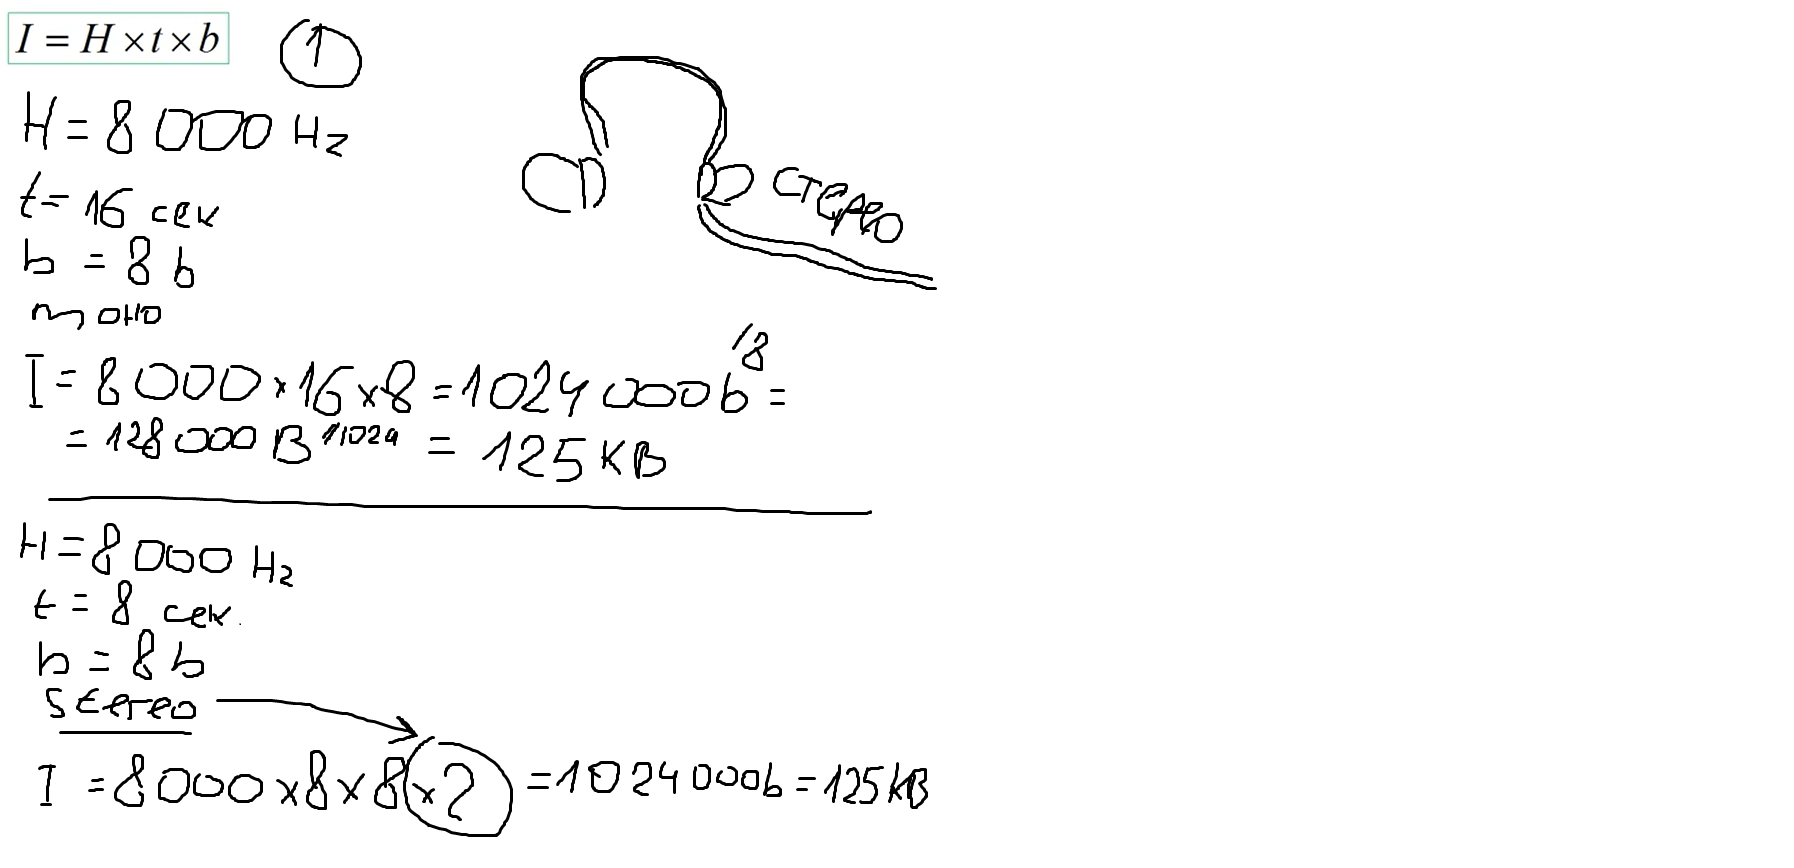 I = H × t × b
1
H = 8 000 Hz
t = 16 сек
b = 8 b
моно
стерео
I = 8 000 × 16 × 8 = 1024 000 b /8 =
= 128 000 B /1024 = 125 KB
H = 8 000 Hz
t = 8 сек.
b = 8 b
stereo
I = 8 000 × 8 × 8 × 2 = 1024 000 b = 125 KB